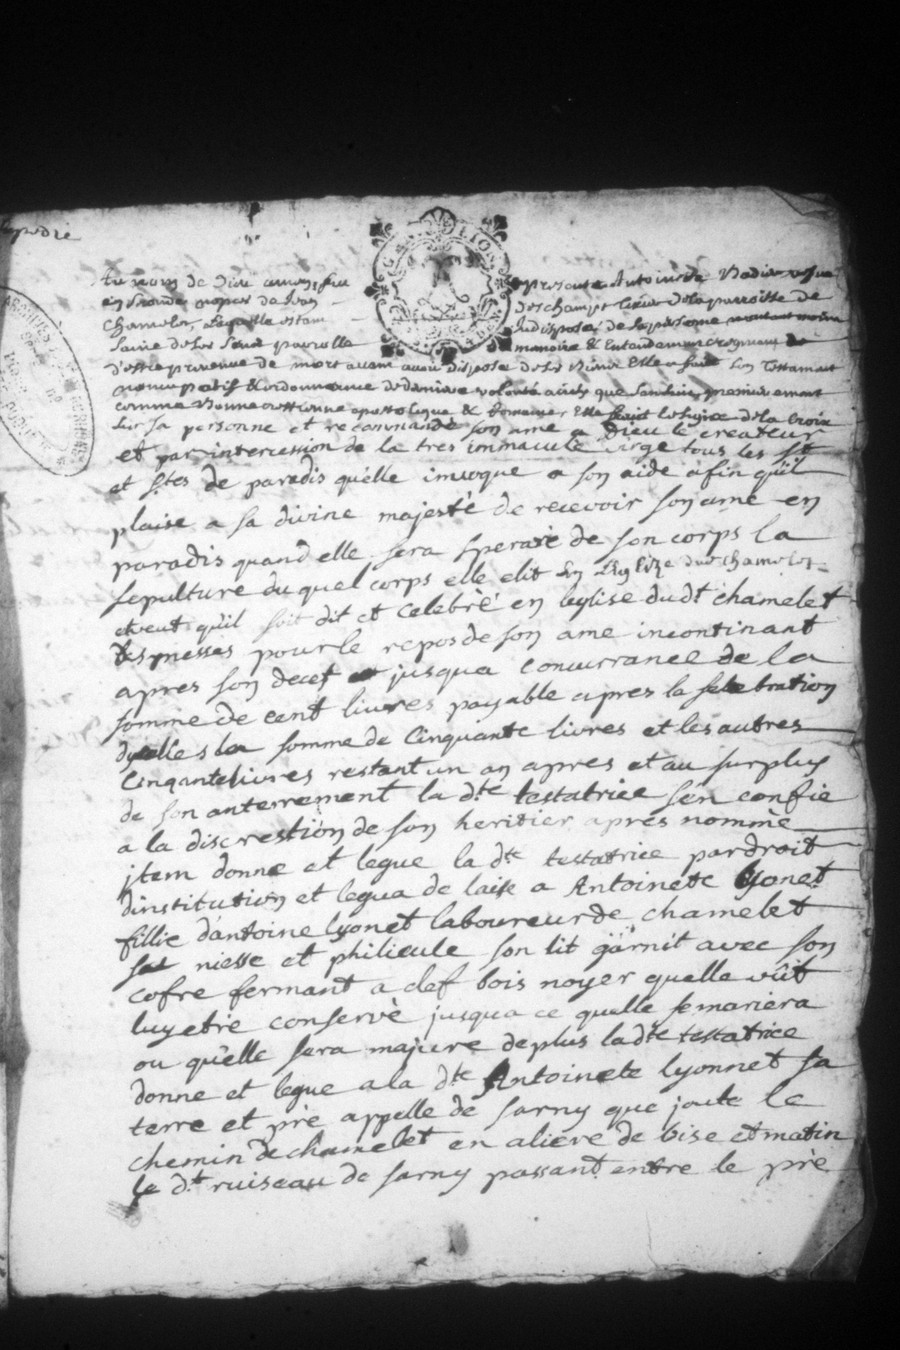 Au nom de Dieu amen, feu presente Antoinete Nadire veuve
en Secondes nopces de Jean Deschampt de la parroisse de
chamelet, Laquelle estant Indisposée de sa personne
saine de ses sens parolle memoire & Entendement Craignant de
d'estre prevenue de mort avant avoir disposé de ses biens Elle a fait son testament
nuncupatif & ordonnance de derniere volonté ainsy que sensuit, premierement
comme bonne crestienne apostolique & Romaine, Elle fait le signe de la Croix
sur sa personne et recommande son ame a Dieu le createur
et par intercession de la tres immaculé virge tous les st
et stes de paradis quelle invoque a son aide afin quil
plaise a sa divine majesté de recevoir son ame en
paradis quand elle sera speraré de son corps la
sepulture duquel corps elle elit En Leglize dud. chamelet
et veut qu'il soit dit et celebré en leglise du dt chamelet
des messes pour le repos de son ame incontinant
apres son decet jusqua concurrance de la
somme de cent livres payable apres la selebration
dycelles la somme de cinquante livres et les autres
cinqantelivres restant un an apres et au surplus
de son anterrement la dte testatrice sen confie
a la discrestion de son heritier aprés nommé
jtem donne et legue la dte testatrice par droit
dinstitution et legua de laise a Antoinete lyonet
fillie d'antoine lyonet laboureur de chamelet
sa niesse et philieule son lit garnit avec son
cofre fermant a clef bois noyer quelle vûit
luy etre conservé jusqua ce quelle se mariera
ou qu'elle sera majure de plus la dte testatrice
donne et legue a la dte Antoinete lyonnet sa
terre et pré appelle de sarny que joute le
chemin de chamelet en aliere de bise et matin
le dt. ruiseau de sarny passant entre le pré